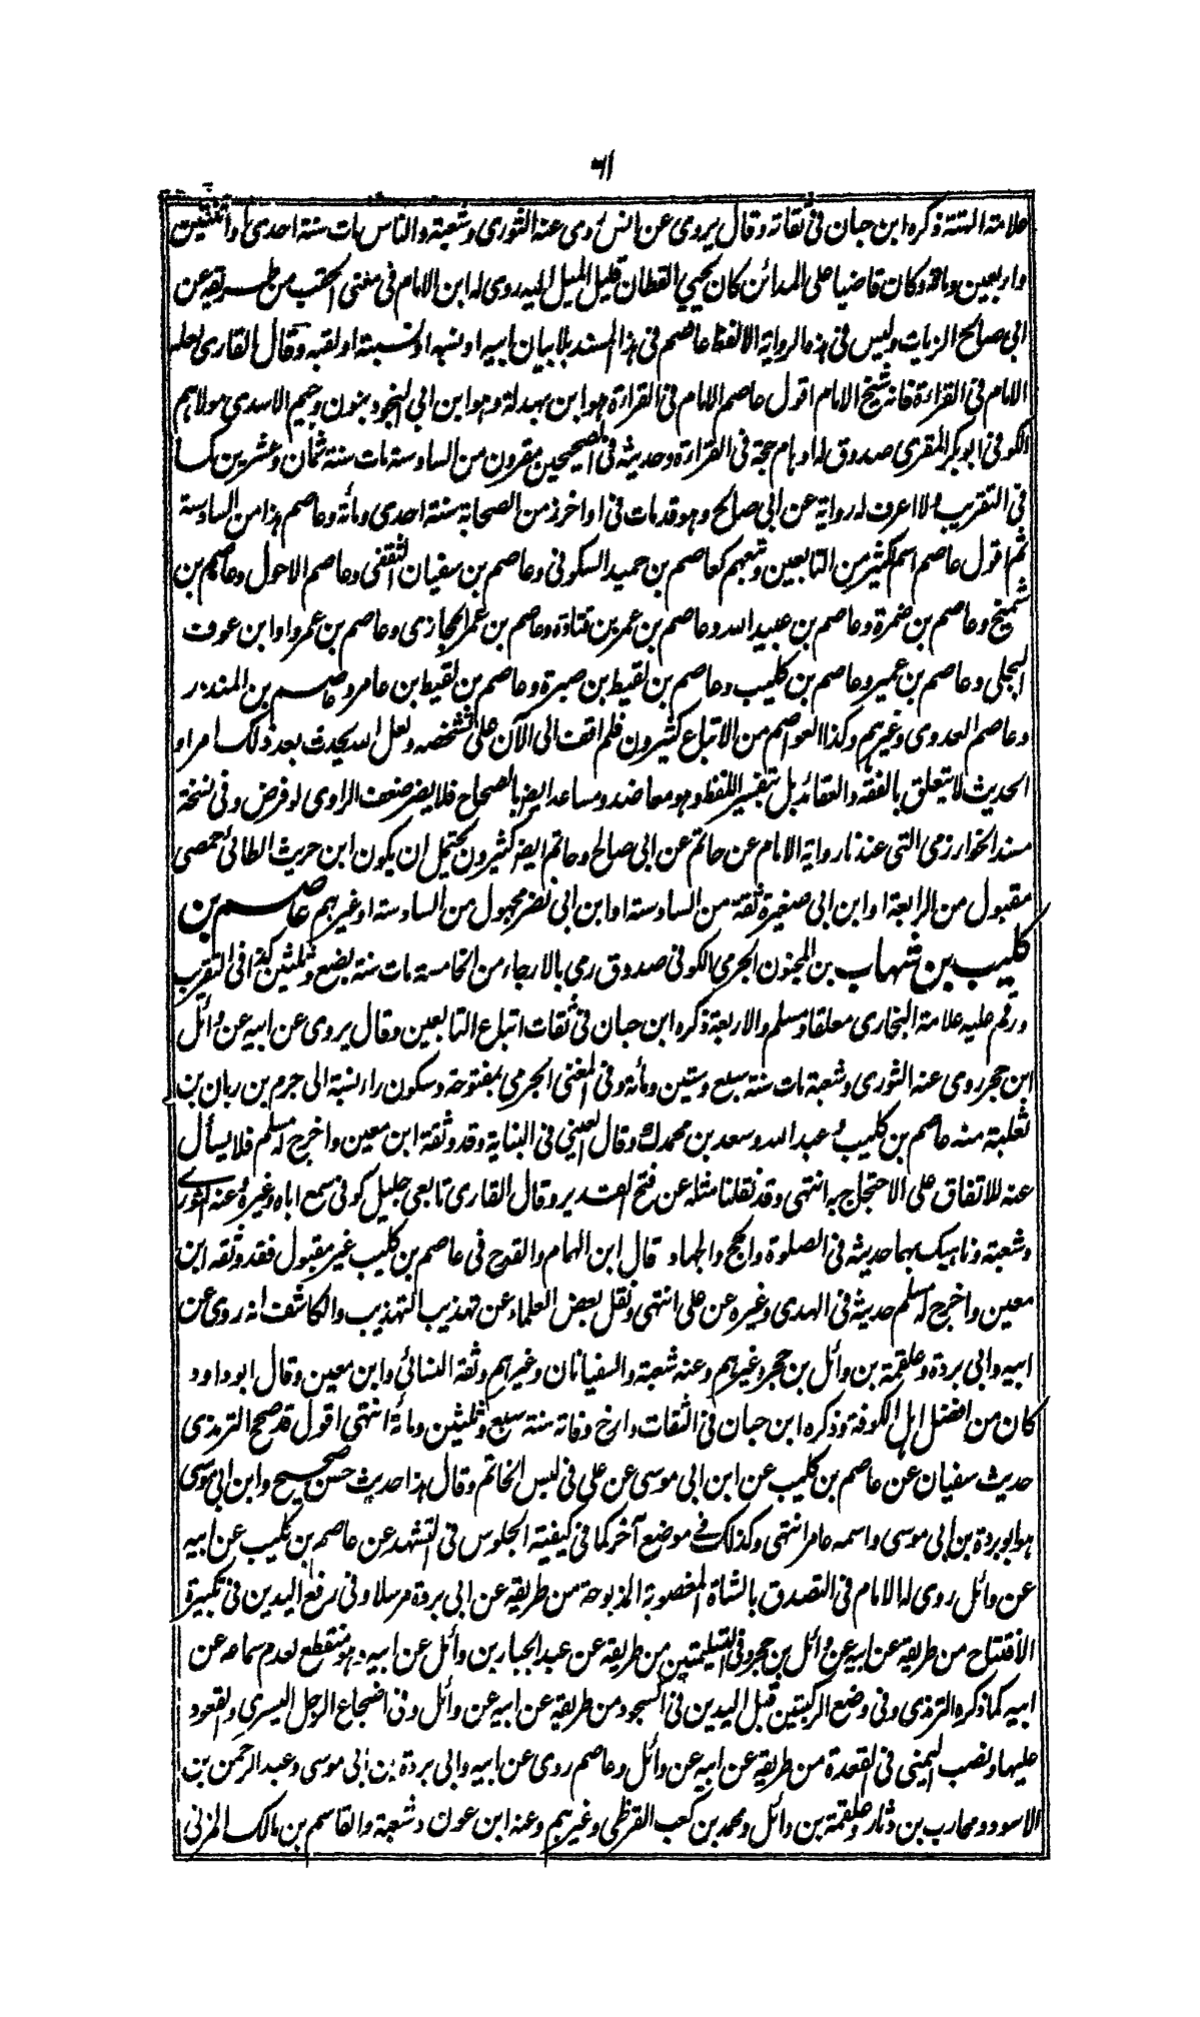 ٦١
علامة الستة ذكره ابن حبان فى ثقاته وقال يروى عن انس روى عنه الثورى وشعبة والناس مات سنة احدى او اثنتين
واربعين ومائة وكان قاضيا على المدائن كان يحيي القطان قليل الميل اليه روى له ابن الامام فى مغنى من طريقه عن
ابى صالح الزيات وليس فى هذه الرواية الا لفظ عاصم فى هذا السند بلا بيان ابيه او نسبه او نسبته او لقبه وقال القارى لعله
الامام فى القراءة فانه شيخ الامام اقول عاصم الامام فى القراءة هو ابن بهدلة وهو ابن ابي النجود بنون وجيم الاسدى مولاهم
الكوفى ابو بكر المقرى صدوق له اوهام حجة فى القراءة وحديثه فى الصحيحين مقرون من السادسة مات سنة ثمان وعشرين كما
فى التقريب ولا اعرف له رواية عن ابى صالح وهو قد مات فى اواخر زمن الصحابة سنة احدى ومأة وعاصم هذا من السادسة
ثم اقول عاصم اسم كثير من التابعين وتبعهم كعاصم بن حميد السكونى وعاصم بن سفيان الثقفى وعاصم الاحول وعاصم بن
شميخ وعاصم بن ضمرة وعاصم بن عبيد الله وعاصم بن عمر بن قتادة وعاصم بن عمر الحجازى وعاصم بن عمرو او ابن عوف
البجلى وعاصم بن عمير وعاصم بن كليب وعاصم بن لقيط بن صبرة وعاصم بن لقيط بن عامر وعاصم بن المنذر
وعاصم العدوى وغيرهم وكذا العواصم من الاتباع كثيرون فلم اقف الى الآن على تشخصه ولعل الله يحدث بعد ذلك امرا و
الحديث لا يتعلق بالفقه والعقائد بل بتفسير اللفظ وهو معاضد ومساعد ايضا بالصحاح فلا يضر ضعف الراوى لو فرض وفى نسخة
مسند الخوارزمى التى عندنا رواية الامام عن حاتم عن ابى صالح وحاتم ايضا كثيرون يحتمل ان يكون ابن حريث الطائى الحمصى
مقبول من الرابعة او ابن ابى صغيرة ثقة من السادسة او ابن ابى نضر مجهول من السادسة او غيرهم عاصم بن
كليب بن شهاب بن المجنون الجرمى الكوفى صدوق رمى بالارجاء من الخامسة مات سنة بضع وثلثين كذا فى التقريب
ورقم عليه علامة البخارى معلقا ومسلم والاربعة ذكره ابن حبان فى ثقات اتباع التابعين وقال يروى عن ابيه عن وائل
ابن حجر روى عنه الثورى وشعبة مات سنة سبع وستين ومأة وفى المغنى الجرمى بمفتوحة وسكون راء نسبة الى جرم بن ربان بن
ثعلبة منه عاصم بن كليب وعبد الله وسعد بن محمد وقال العينى فى البناية وقد وثقه ابن معين واخرج له مسلم فلا يسأل
عنه للاتفاق على الاحتجاج به انتهى وقد نقلنا مثله عن فتح القدير وقال القارى تابعى جليل كوفى سمع اباه وغيره وعنه الثورى
وشعبة وناهيك بهما حديثه فى الصلوة والحج والجهاد قال ابن الهمام والقدح فى عاصم بن كليب غير مقبول فقد وثقه ابن
معين واخرج له مسلم حديثه فى الهدى وغيره عن على انتهى ونقل بعض العلماء عن تهذيب التهذيب والكاشف انه روى عن
ابيه وابى بردة وعلقمة بن وائل بن حجر وغيرهم وعنه شعبة والسفيانان وغيرهم وثقه النسائى وابن معين وقال ابو داود
كان من افضل اهل الكوفة وذكره ابن حبان فى الثقات وارخ وفاته سنة سبع وثلثين ومأة انتهى اقول قد صحح الترمذى
حديث سفيان عن عاصم بن كليب عن ابن ابى موسى عن على فى لبس الخاتم وقال هذا حديث حسن صحيح وابن ابى موسى
هو ابو بردة بن ابى موسى واسمه عامر انتهى وكذلك فى موضع آخر كما فى كيفية الجلوس فى التشهد عن عاصم بن كليب عن ابيه
عن وائل روى له الامام فى التصدق بالشاة المغصوبة المذبوحة من طريقه عن ابى بردة مرسلا وفى رفع اليدين فى تكبيرة
الافتتاح من طريقه عن ابيه عن وائل بن حجر وفى التسليمتين من طريقه عن عبد الجبار بن وائل عن ابيه وهو منقطع لعدم سماعه عن
ابيه كما ذكره الترمذى وفى وضع الركبتين قبل اليدين فى السجود من طريقه عن ابيه عن وائل وفى اضجاع الرجل اليسرى والقعود
عليها ونصب اليمنى فى القعدة من طريقه عن ابيه عن وائل وعاصم روى عن ابيه وابى بردة بن ابى موسى وعبد الرحمن بن
الاسود ومحارب بن دثار وعلقمة بن وائل ومحمد بن كعب القرظى وغيرهم وعنه ابن عون وشعبة والقاسم بن مالك المزنى